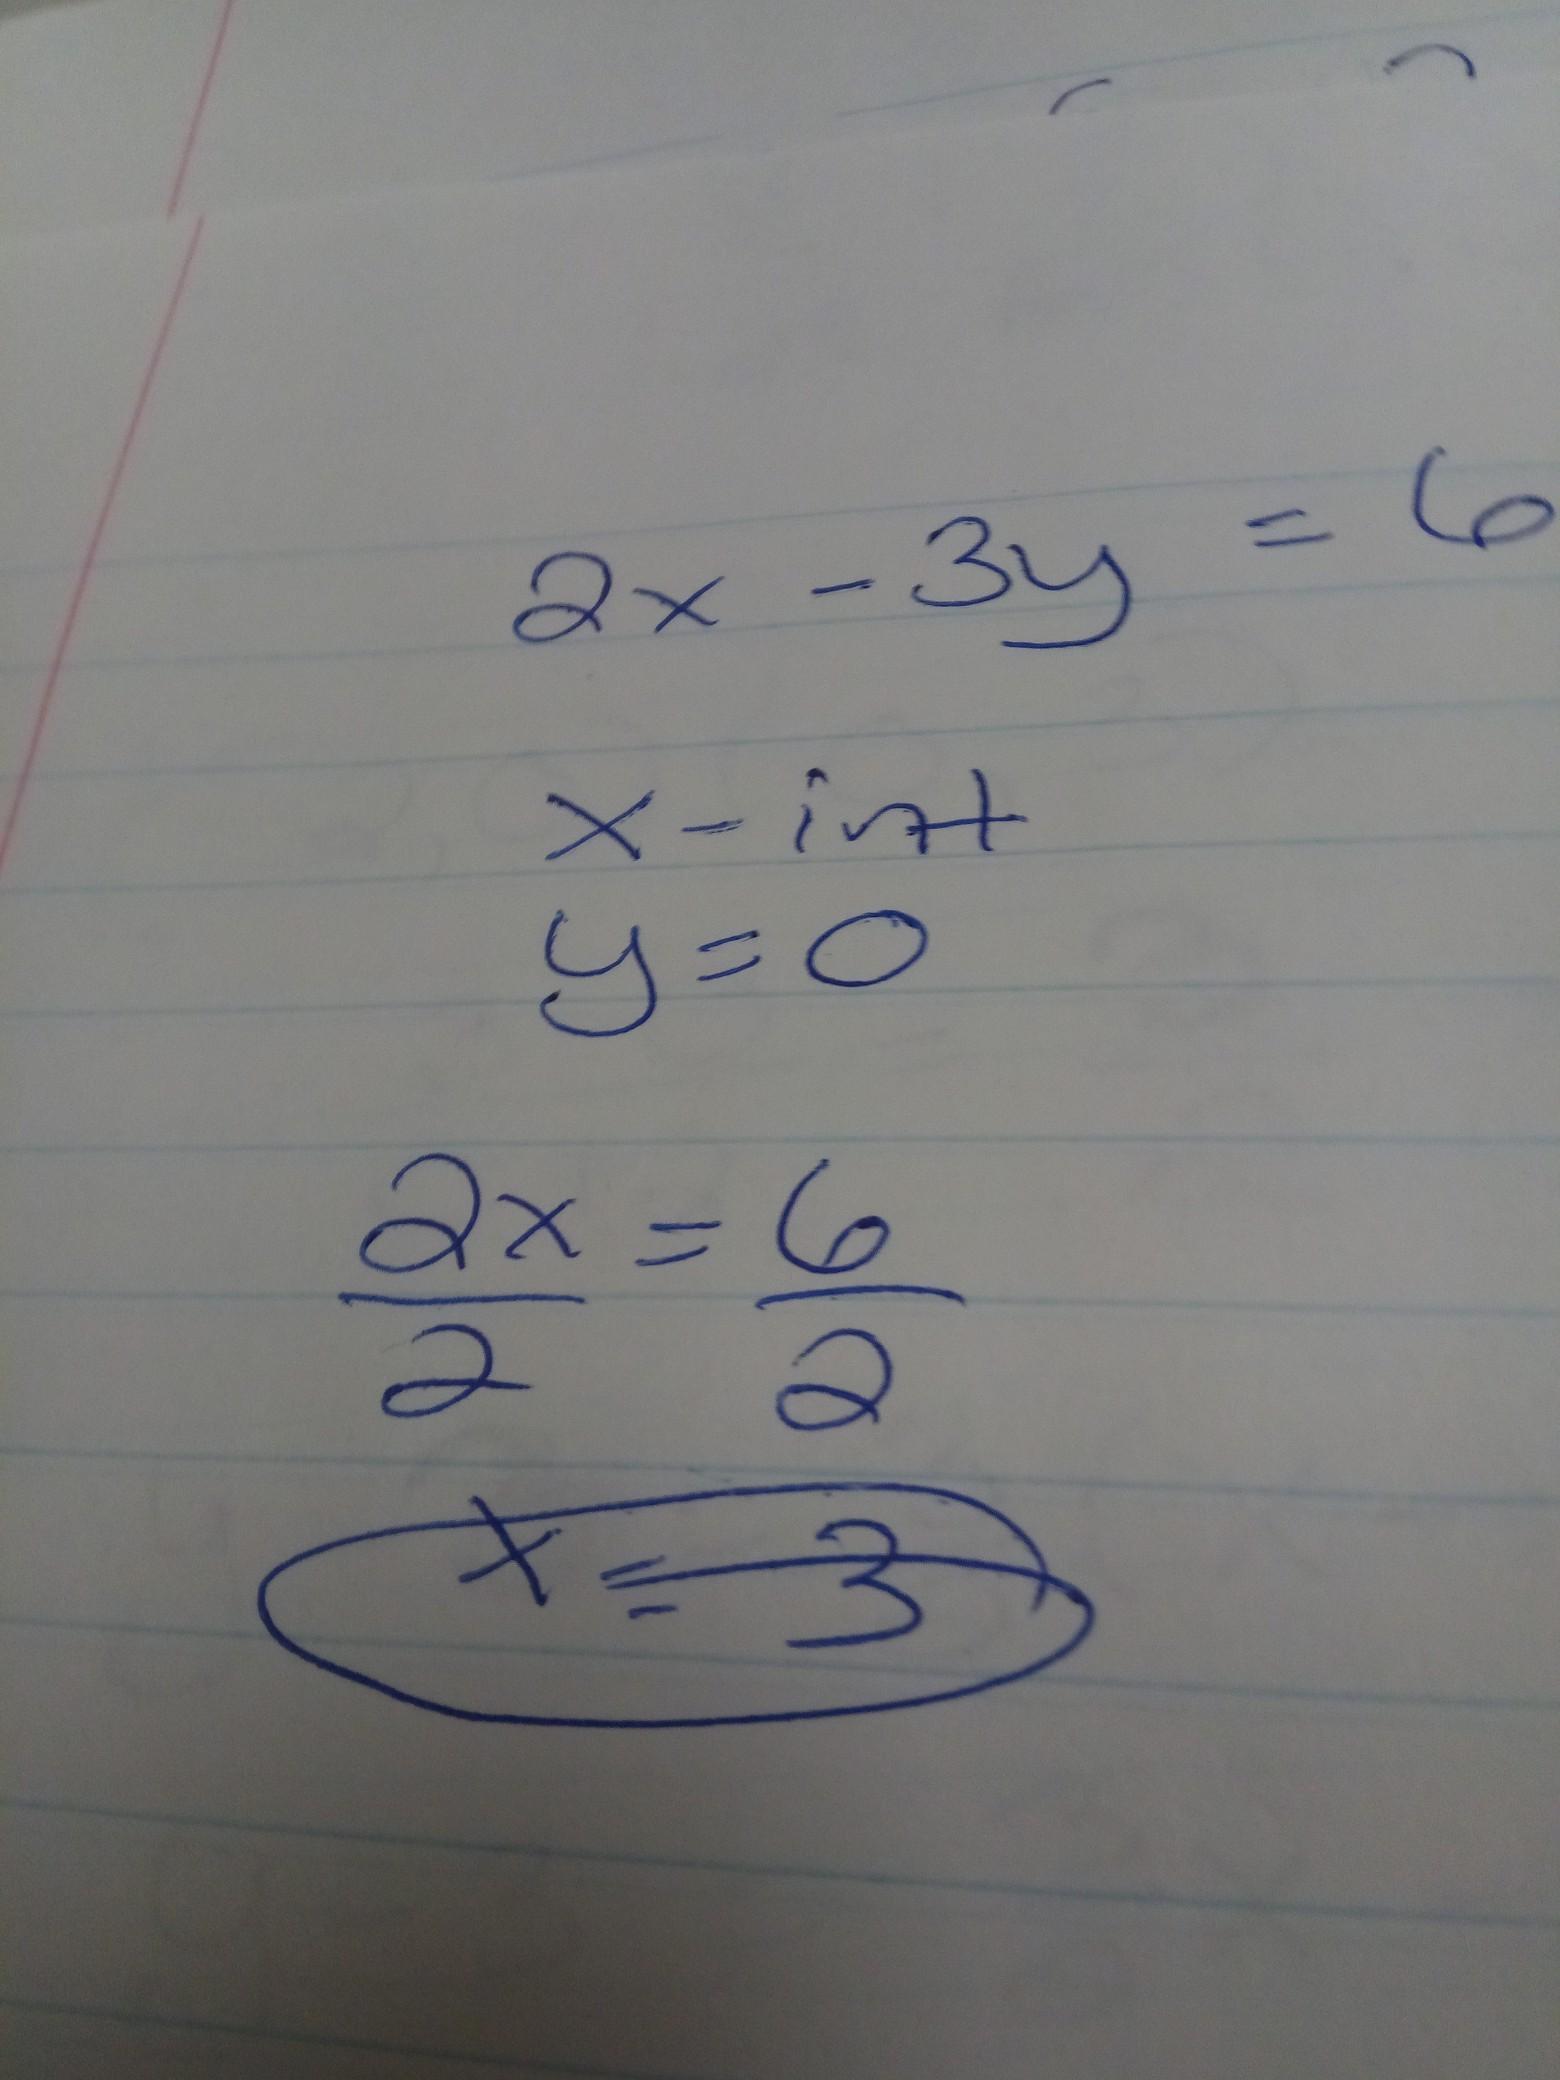 2x - 3y = 6
x - int
y = 0
2x = 6
2 2
x = 3